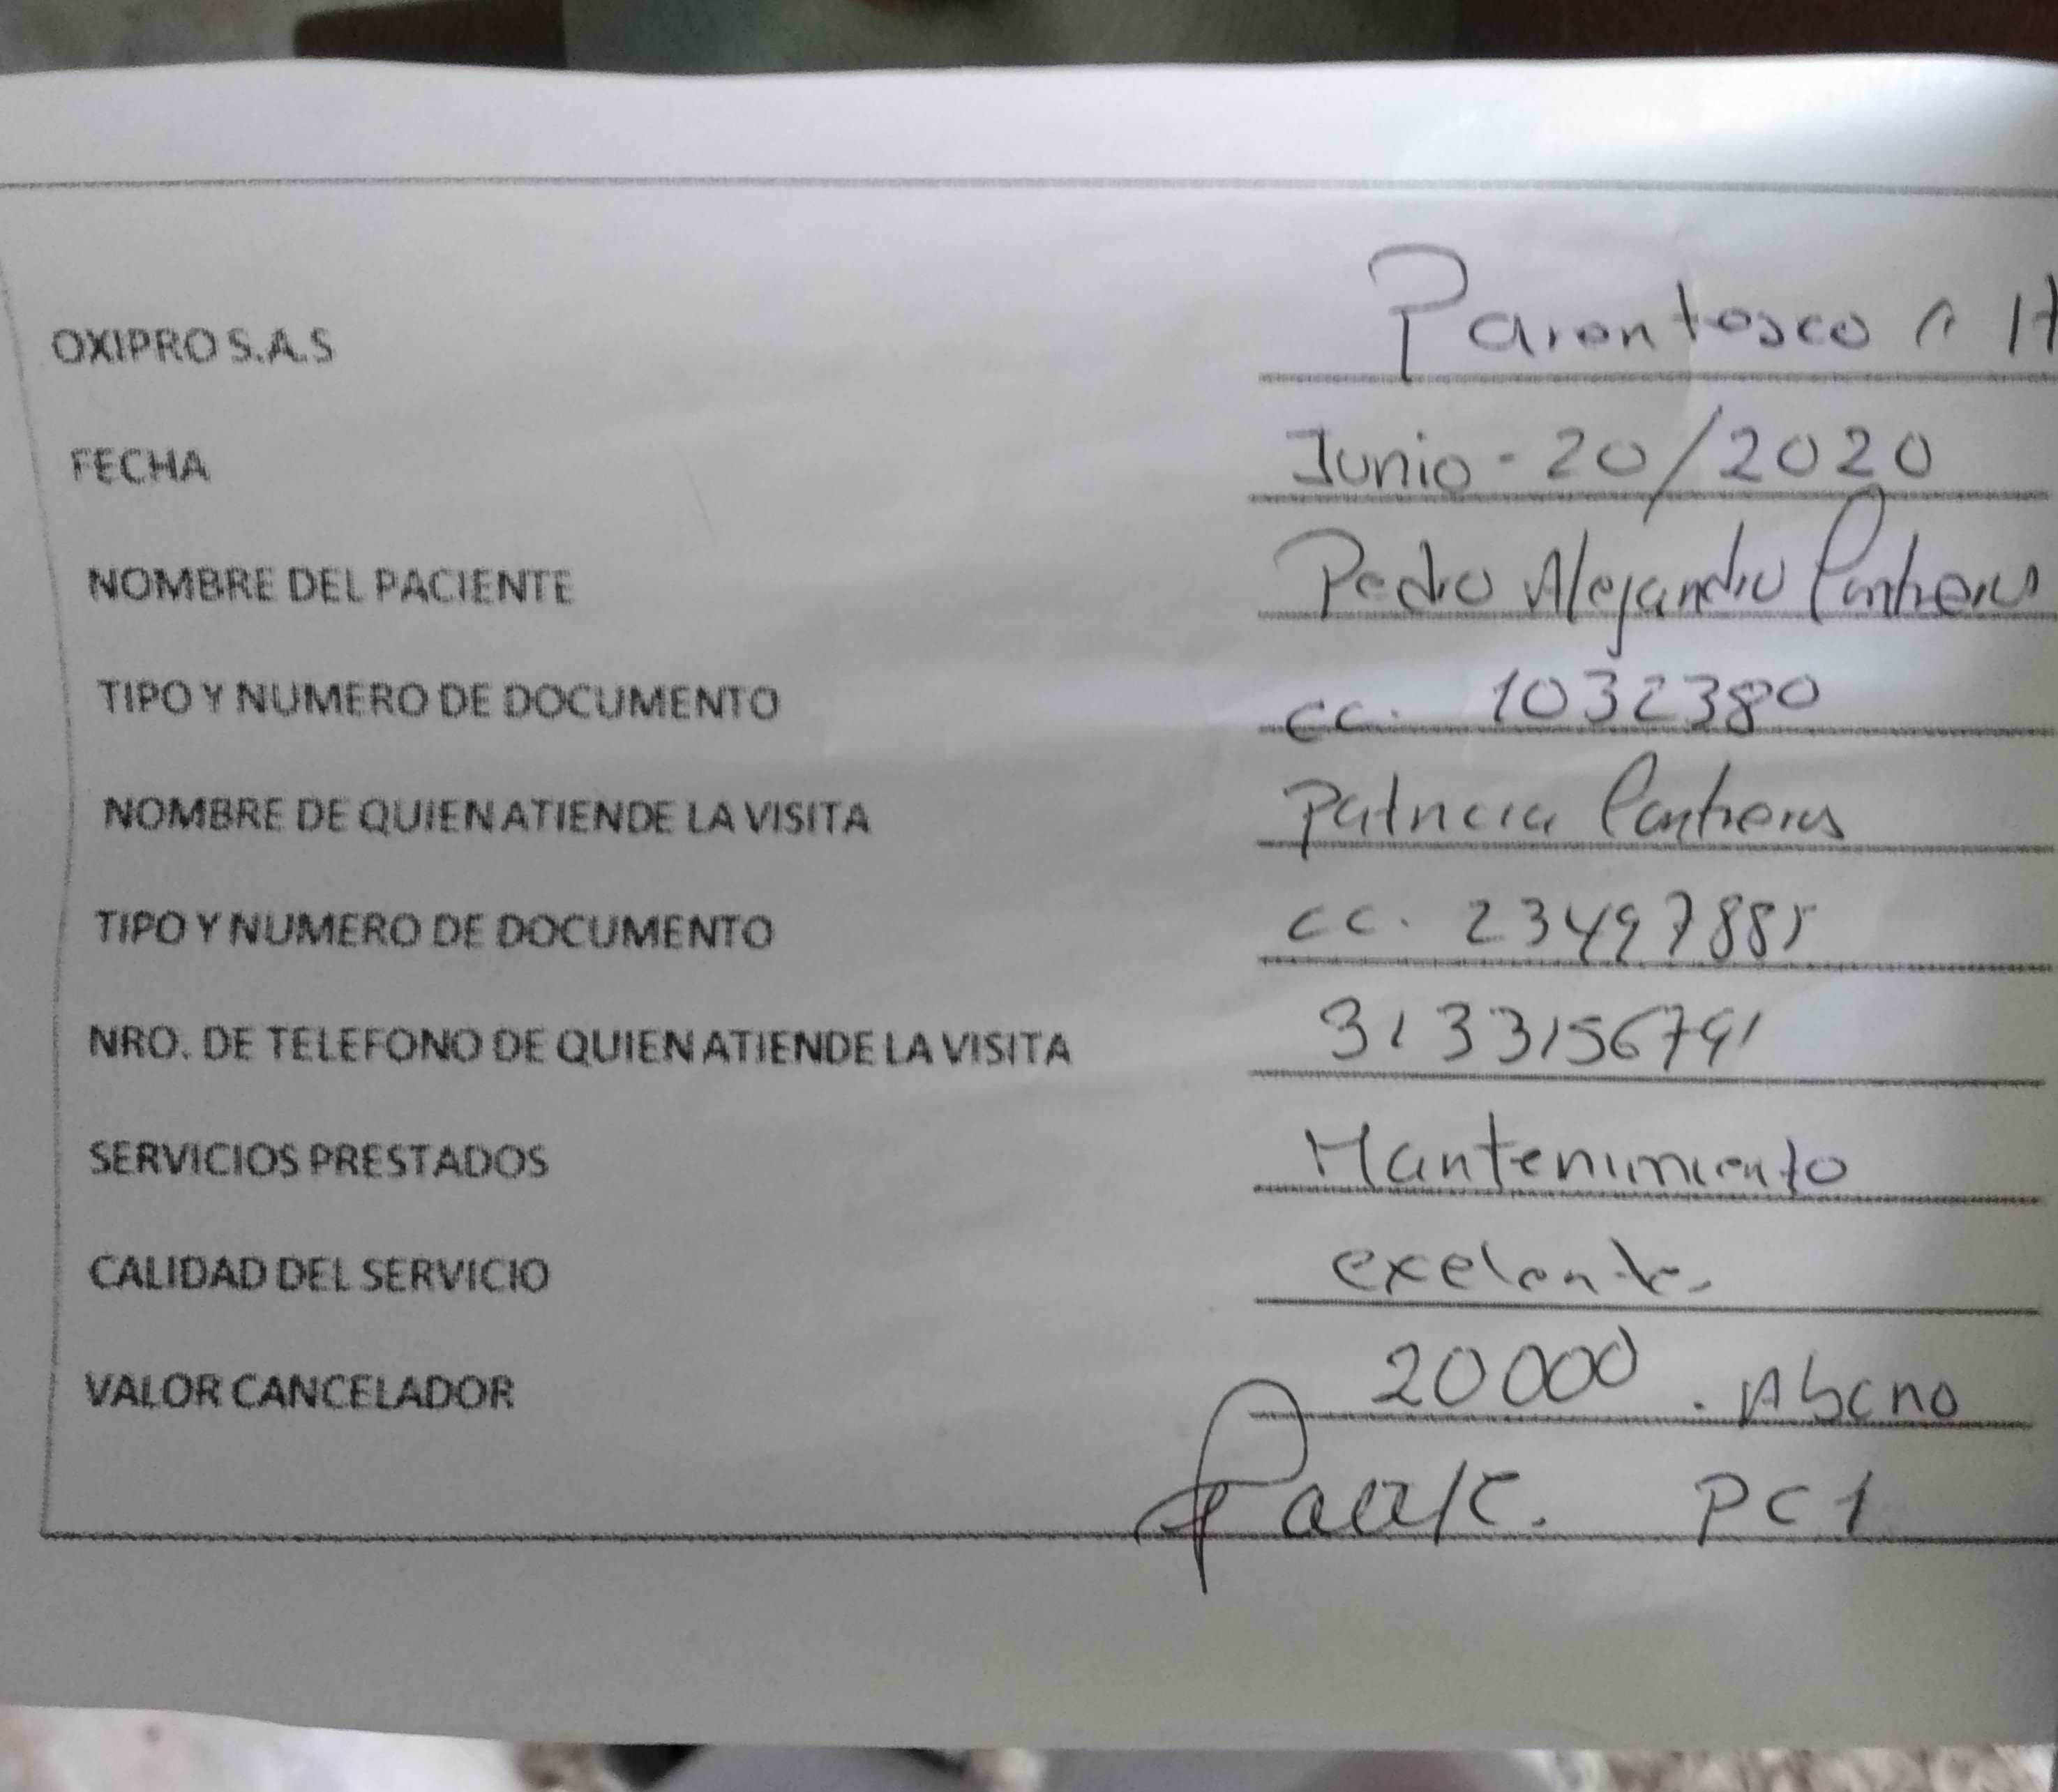 OXIPRO S.A.S Parentesco
FECHA Junio - 20/2020
NOMBRE DEL PACIENTE Pedro Alejandro Contreras
TIPO Y NUMERO DE DOCUMENTO cc. 1032380
NOMBRE DE QUIEN ATIENDE LA VISITA Patricia Contreras
TIPO Y NUMERO DE DOCUMENTO cc. 23497885
NRO. DE TELEFONO DE QUIEN ATIENDE LA VISITA 3133156791
SERVICIOS PRESTADOS Mantenimiento
CALIDAD DEL SERVICIO exelente
VALOR CANCELADOR 20000. Abono
PC1